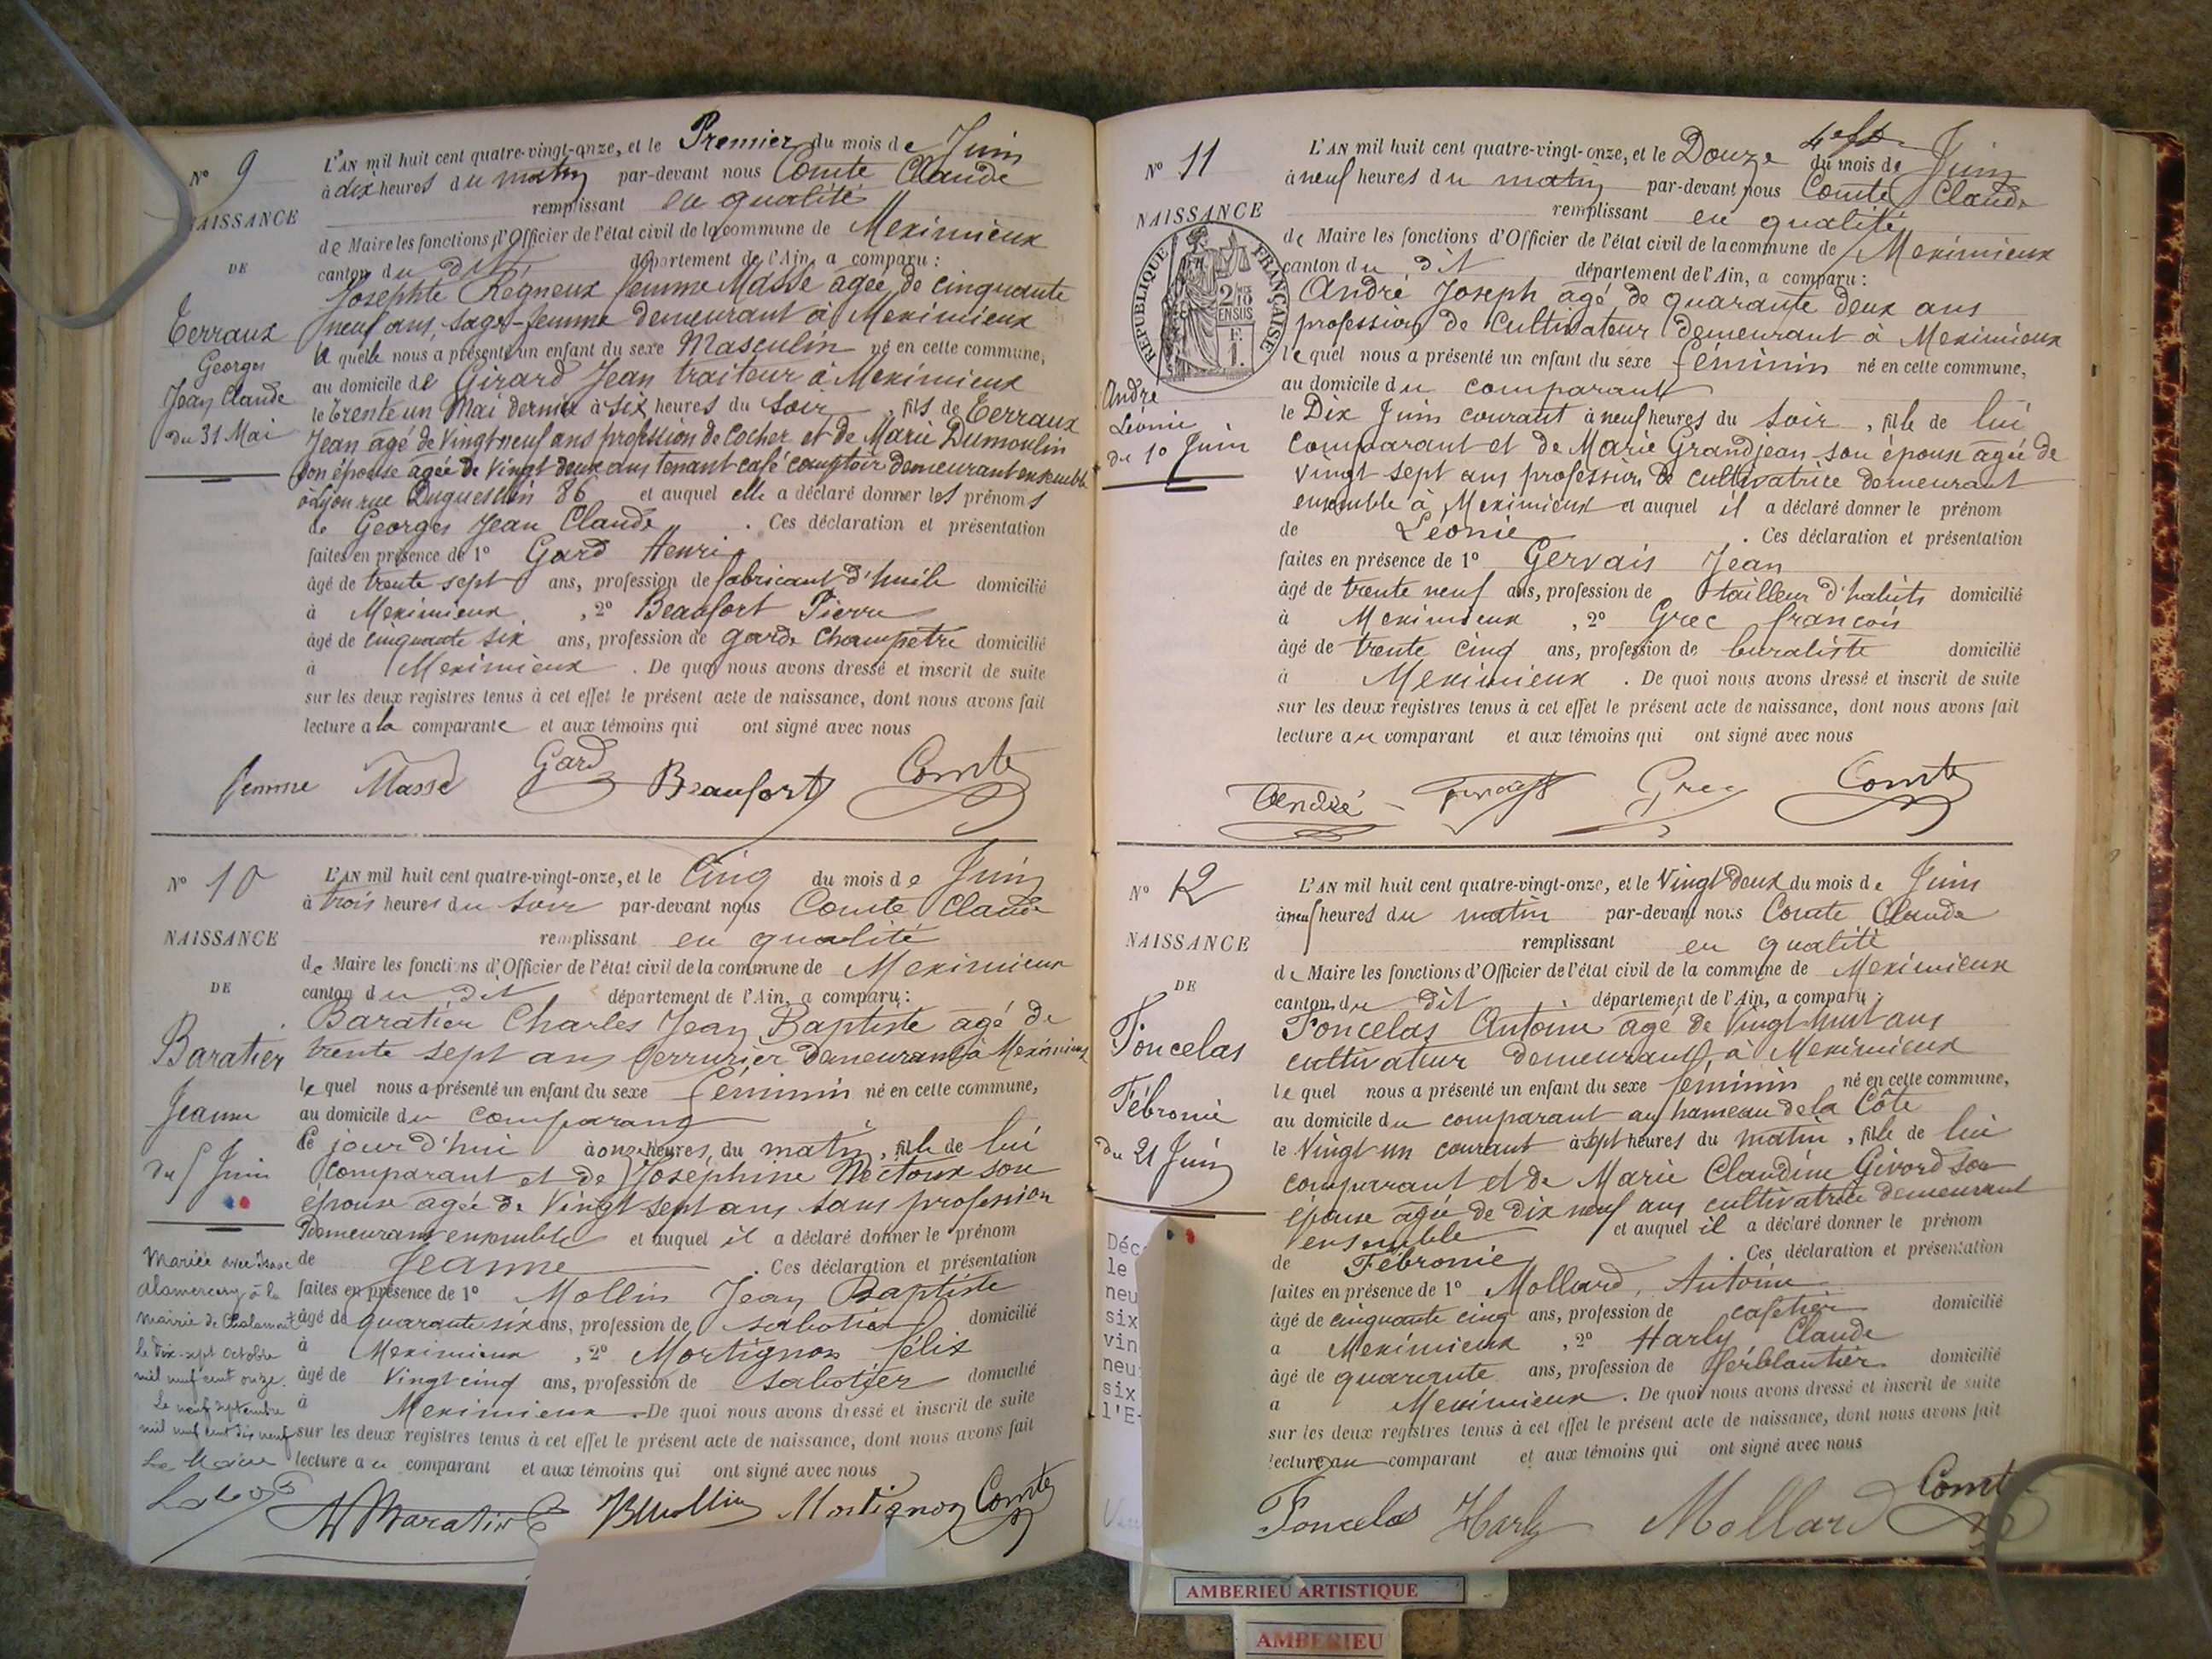 N° 9
NAISSANCE
DE
Terraux
Georges
Jean Claude
du 31 Mai
L'AN mil huit cent quatre-vingt-onze, et le Premier du mois de Juin
à dix heures du matin par-devant nous Comte Claude
remplissant en qualité
de Maire les fonctions d'Officier de l'état civil de la commune de Meximieux
canton du dit département de l'Ain, a comparu :
Josephte Régneux femme Masse agée de cinquante
neuf ans, sage-femme demeurant à Meximieux
la quelle nous a présenté un enfant du sexe Masculin né en cette commune,
au domicile de Girard Jean traiteur à Meximieux
le trente un Mai dernier à six heures du soir, fils de Terraux
Jean agé de vingt neuf ans profession de cocher et de Marie Dumoulin
son épouse agée de vingt deux ans tenant café comptoir demeurant ensemble
à Lyon rue Duguesclin 86 et auquel elle a déclaré donner les prénoms
de Georges Jean Claude . Ces déclaration et présentation
faites en présence de 1° Gard Henri
âgé de trente sept ans, profession de fabricant d'huile domicilié
à Meximieux , 2° Beaufort Pierre
âgé de cinquante six ans, profession de garde champetre domicilié
à Meximieux . De quoi nous avons dressé et inscrit de suite
sur les deux registres tenus à cet effet le présent acte de naissance, dont nous avons fait
lecture a la comparante et aux témoins qui ont signé avec nous
femme Masse Gard Beaufort Comte
N° 10
NAISSANCE
DE
Baratier
Jeanne
du 5 Juin
Mariée avec Isaac
Alamercery à la
mairie de Chalamont
le dix-sept octobre
mil neuf cent onze.
Le neuf septembre
mil neuf cent dix neuf
Le Maire
L'AN mil huit cent quatre-vingt-onze, et le Cinq du mois de Juin
à trois heures du soir par-devant nous Comte Claude
remplissant en qualité
de Maire les fonctions d'Officier de l'état civil de la commune de Meximieux
canton du dit département de l'Ain, a comparu :
Baratier Charles Jean Baptiste agé de
trente sept ans serrurier demeurant à Meximieux
le quel nous a présenté un enfant du sexe féminin né en cette commune,
au domicile du comparant
ce jour d'hui à onze heures du matin, fille de lui
comparant et de Joséphine Nectoux son
épouse agée de vingt sept ans sans profession
Demeurant ensemble et auquel il a déclaré donner le prénom
de Jeanne . Ces déclaration et présentation
faites en présence de 1° Mollin Jean Baptiste
âgé de quarante six ans, profession de sabotier domicilié
à Meximieux , 2° Mortignon félix
âgé de vingt cinq ans, profession de sabotier domicilié
à Meximieux . De quoi nous avons dressé et inscrit de suite
sur les deux registres tenus à cet effet le présent acte de naissance, dont nous avons fait
lecture au comparant et aux témoins qui ont signé avec nous
Baratier Mollin Mortignon Comte
N° 11
NAISSANCE
RÉPUBLIQUE FRANÇAISE
2/10 EN SUS
F.
1.
André
Léonie
du 10 Juin
L'AN mil huit cent quatre-vingt-onze, et le Douze du mois de Juin
à neuf heures du matin par-devant nous Comte Claude
remplissant en qualité
de Maire les fonctions d'Officier de l'état civil de la commune de Meximieux
canton du dit département de l'Ain, a comparu :
André Joseph agé de quarante deux ans
profession de cultivateur demeurant à Meximieux
le quel nous a présenté un enfant du sexe féminin né en cette commune,
au domicile du comparant
le Dix Juin courant à neuf heures du soir, fille de lui
comparant et de Marie Grandjean son épouse agée de
vingt sept ans profession de cultivatrice demeurant
ensemble à Meximieux et auquel il a déclaré donner le prénom
de Léonie . Ces déclaration et présentation
faites en présence de 1° Gervais Jean
âgé de trente neuf ans, profession de tailleur d'habits domicilié
à Meximieux , 2° Grec françois
âgé de trente cinq ans, profession de buraliste domicilié
à Meximieux . De quoi nous avons dressé et inscrit de suite
sur les deux registres tenus à cet effet le présent acte de naissance, dont nous avons fait
lecture au comparant et aux témoins qui ont signé avec nous
André Gervais Grec Comte
N° 12
NAISSANCE
DE
Poncelas
Fébronie
du 21 Juin
L'AN mil huit cent quatre-vingt-onze, et le Vingt deux du mois de Juin
à neuf heures du matin par-devant nous Comte Claude
remplissant en qualité
de Maire les fonctions d'Officier de l'état civil de la commune de Meximieux
canton du dit département de l'Ain, a comparu :
Poncelas Antoine agé de vingt huit ans
cultivateur demeurant à Meximieux
le quel nous a présenté un enfant du sexe féminin né en cette commune,
au domicile du comparant au hameau de la Côte
le Vingt un courant à sept heures du matin, fille de lui
comparant et de Marie Claudine Givord son
épouse agée de dix neuf ans cultivatrice demeurant
ensemble et auquel il a déclaré donner le prénom
de Fébronie . Ces déclaration et présentation
faites en présence de 1° Mollard Antoine
âgé de cinquante cinq ans, profession de cafetier domicilié
a Meximieux , 2° Harly Claude
âgé de quarante ans, profession de ferblantier domicilié
a Meximieux . De quoi nous avons dressé et inscrit de suite
sur les deux registres tenus à cet effet le présent acte de naissance, dont nous avons fait
lecture au comparant et aux témoins qui ont signé avec nous
Poncelas Harly Mollard Comte
Déc
le
neu
six
vin
neu
six
l'E
AMBERIEU ARTISTIQUE
AMBERIEU